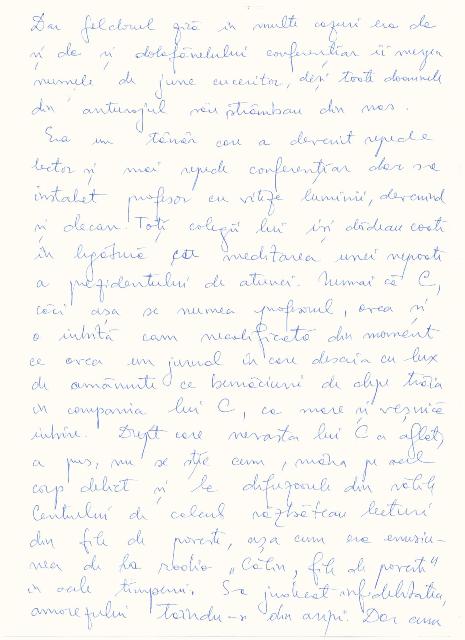 Dar folclorul zisă în multe cazuri era de
și de și dolofănelului conferențiar îi mergea
numele de june cuceritor, deși toate doamnele
din anturajul său strâmbau din nas.
Era un tânăr care a devenit repede
lector și mai repede conferențiar dar s-a
instalat profesor cu viteza luminii, devenind
și decan. Toți colegii lui își dădeau coate
în legătură cu meditarea unei nepoate
a președintelui de atunci. Numai că C,
căci așa se numea profesorul, avea și
o iubită cam necalificată din moment
ce avea un jurnal în care descria cu lux
de amănunte ce bunăciuni de clipe trăia
în compania lui C, ca mare și veșnică
iubire. Drept care nevasta lui C a aflat,
a pus, nu se știe cum, mâna pe acel
corp delict și la difuzoarele din sălile
Centrului de calcul răzbăteau lecturi
din file de poveste, așa cum era emisiu-
nea de la radio „Călin, file de poveste"
în acele timpuri. S-a judecat infidelitatea,
amorezului tăindu-i din aripi. Dar cum